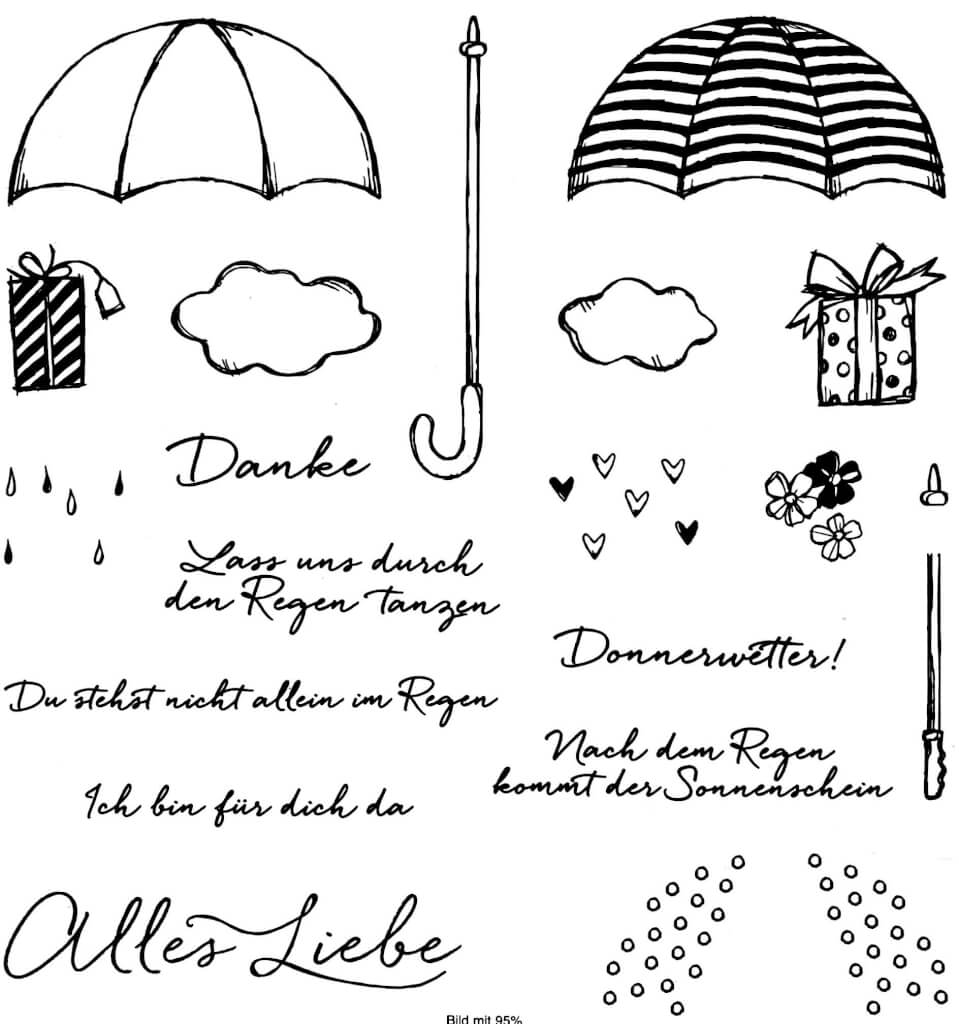 Danke
Lass uns durch
den Regen tanzen
Donnerwetter!
Du stehst nicht allein im Regen
Nach dem Regen
kommt der Sonnenschein
Ich bin für dich da
Alles Liebe
Bild mit 95%